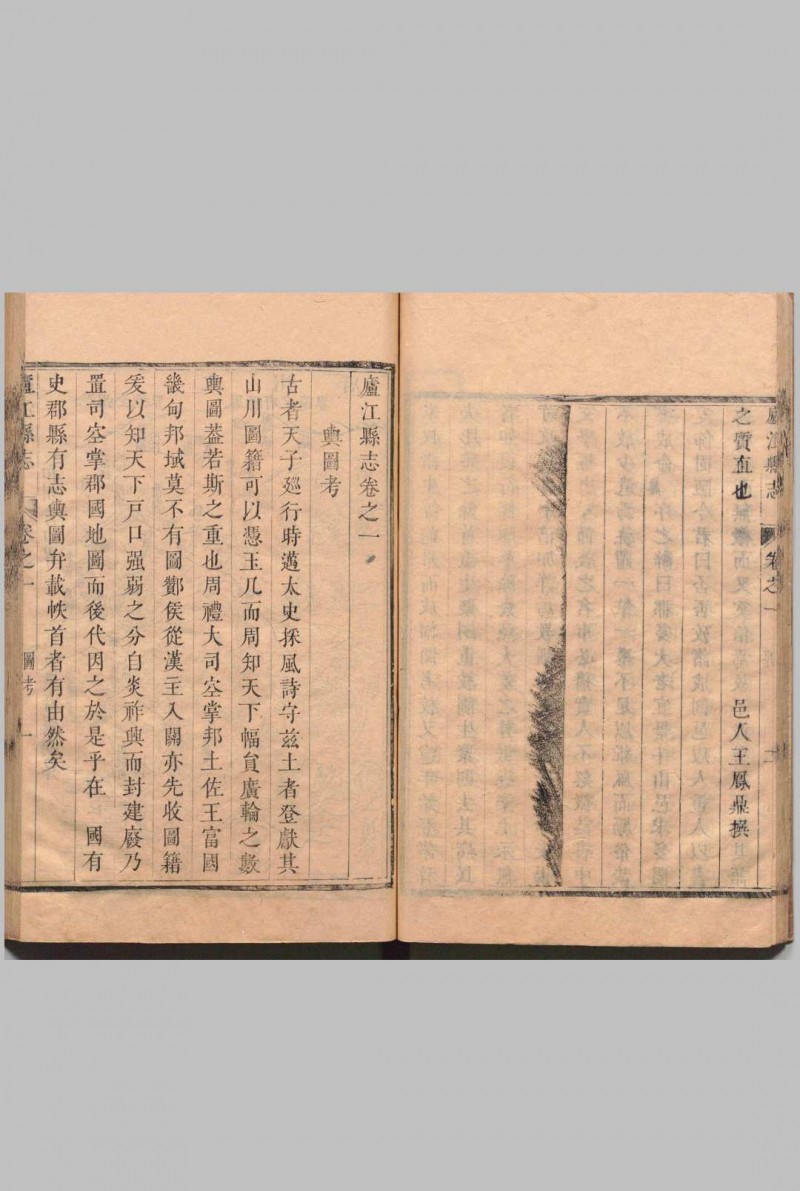 廬江縣志
卷之一
之質直也
邑人王鳳鼎撰
廬江縣志卷之一
輿圖考
古者天子廵行時邁太史採風詩守兹土者登獻其
山川圖籍可以憑玉几而周知天下幅貟廣輪之數
輿圖葢若斯之重也周禮大司空掌邦土佐王富國
畿甸邦域莫不有圖酇侯從漢王入關亦先收圖籍
爰以知天下戸口强弱之分自炎祚興而封建廢乃
置司空掌郡國地圖而後代因之於是乎在 國有
史郡縣有志輿圖弁載帙首者有由然矣
廬江縣志
卷之一
圖考
一